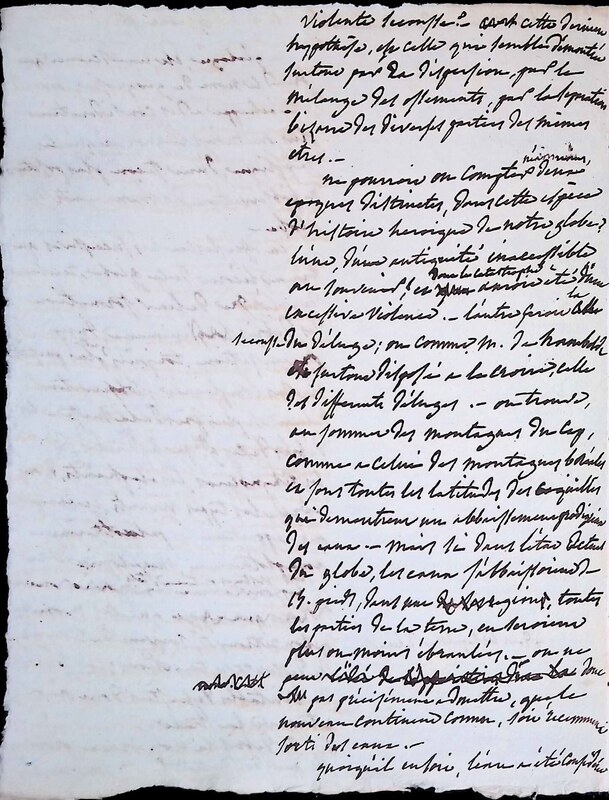 violente secousse. - cette derniere
hypothèse, est celle qui semble démontrée
surtout par la dispersion, par le
mélange des ossements, par la separation
bizarre des diverses parties des mêmes
etres. -
ne pourroit on compter néanmoins, deux
epoques distinctes, dans cette espèce
d'histoire heroique de notre globe?
l'une, d'une antiquité inaccessible
au souvenir! et dont la catastrophe auroit été d'une
excessive violence. - l'autre seroit la
secousse du déluge; ou comme M. de
est surtout disposé a le croire celle
des differents déluges. - on trouve,
au sommet des montagnes du Cap,
comme a celui des montagnes boréales
et sous toutes les latitudes des coquilles
qui demontrent un abbaissement prodigieux
des eaux - mais si dans l'état actuel
du globe, les eaux s'abbaissoient de
15. pieds, dans une région, toutes
les parties de la terre, en seroient
plus ou moins ebranlées. - on ne
peut donc
pas précisément admettre, que le
nouveau continent connu, soit récemment
sorti des eaux. -
quoiqu'il en soit, l'eau a été